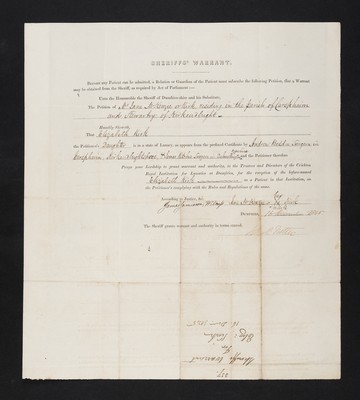 SHERIFFS' WARRANT.
Before any Patient can be admitted, a Relation or Guardian of the Patient must subscribe the following Petition, that a Warrant
may be obtained from the Sheriff, as required by Act of Parliament:—
Unto the Honourable the Sheriff of Dumfries-shire and his Substitute,
The Petition of Mrs Jane McKenzie or Kirk residing in the parish of
and Stewartry of Kirkcudbright
Humbly Sheweth,
That Elizabeth Kirk
the Petitioner's Daughter is in a state of Lunacy, as appears from the prefixed Certificate by Andrew Surgeon in
Kirkcudbrightshire, Surgeon in and the Petitioner therefore
Prays your Lordship to grant warrant and authority, to the Trustees and Directors of the Crichton
Royal Institution for Lunatics at Dumfries, for the reception of the before-named
Elizabeth Kirk as a Patient in that Institution, on
the Petitioner's complying with the Rules and Regulations of the same.
According to Justice, &c.
Jane McKenzie or Kirk
Dumfries, 16 December 18
The Sheriff grants warrant and authority in terms craved.
Sheriff's Warrant
for
Eliz: Kirk
16 Dec